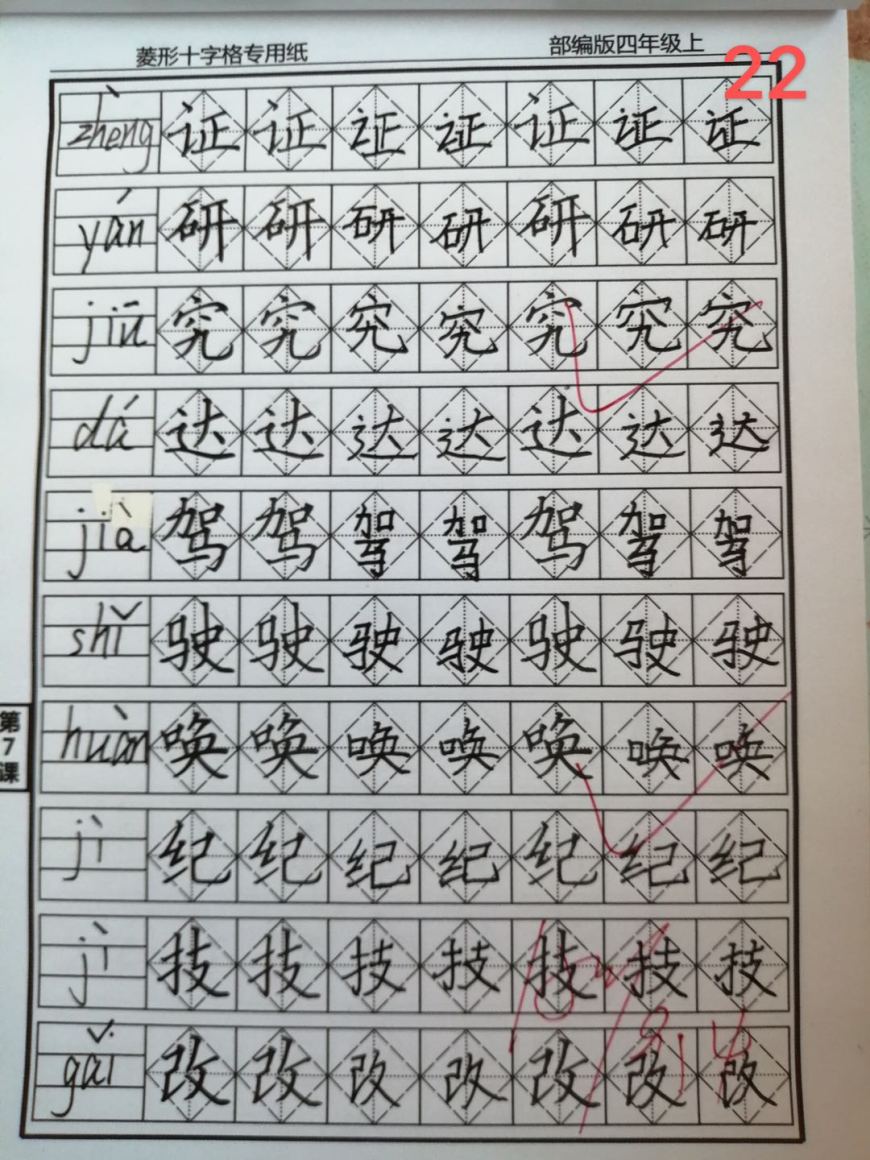 菱形十字格专用纸 部编版四年级上
22
zhèng 证 证 证 证 证 证 证
yán 研 研 研 研 研 研 研
jiū 究 究 究 究 究 究 究
dá 达 达 达 达 达 达 达
jià 驾 驾 驾 驾 驾 驾 驾
shǐ 驶 驶 驶 驶 驶 驶 驶
huàn 唤 唤 唤 唤 唤 唤 唤
第7课
jì 纪 纪 纪 纪 纪 纪 纪
jì 技 技 技 技 技 技 技
gǎi 改 改 改 改 改 改 改